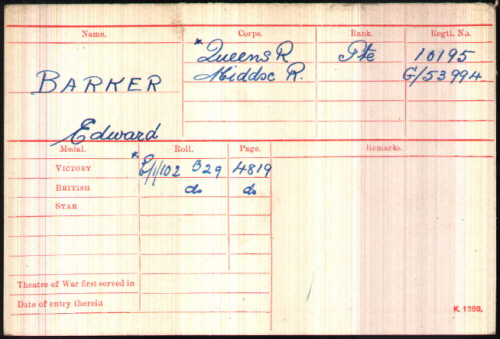 Name. Corps. Rank. Regtl. No.
BARKER * Queens R Pte 10195
Middsx R. G/53994
Edward
Medal. Roll. Page. Remarks.
VICTORY * E/1/102 B29 4819
BRITISH do do
STAR
Theatre of War first served in
Date of entry therein
K. 1380.